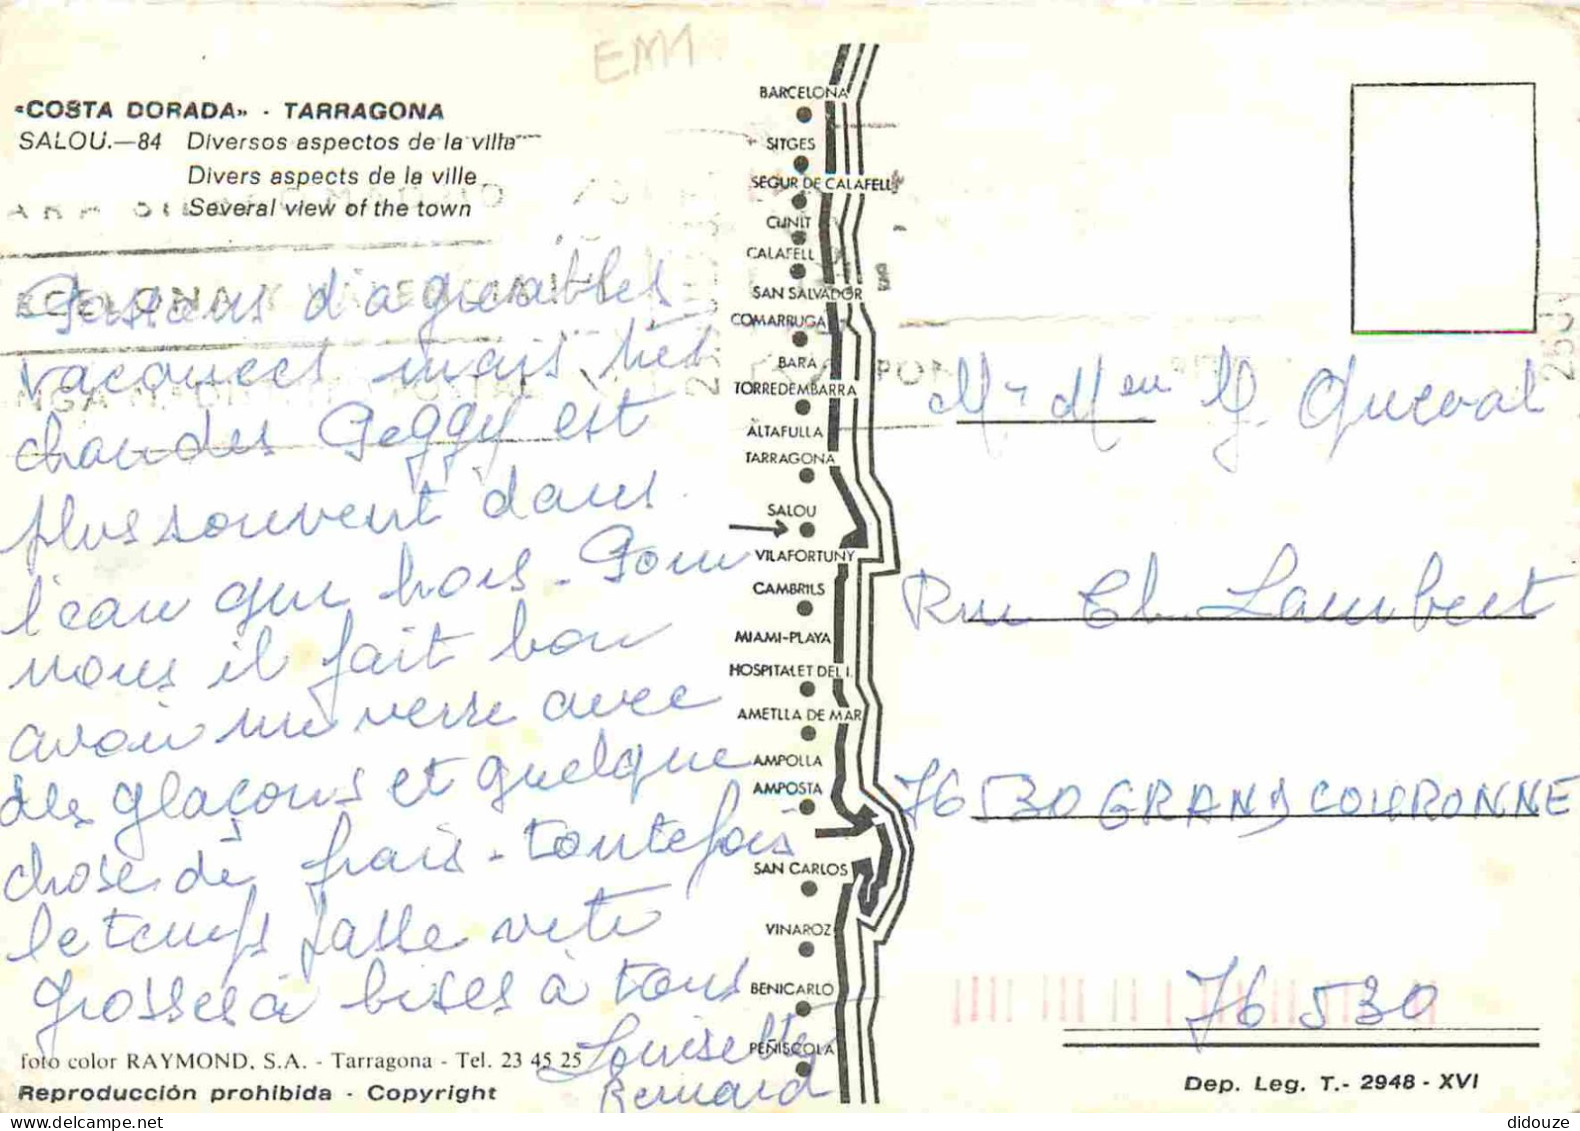 EM1
«COSTA DORADA» - TARRAGONA
SALOU.—84 Diversos aspectos de la villa
Divers aspects de la ville
Several view of the town
Passons d'agréables
vacances mais très
chaudes Peggy est
plus souvent dans
l'eau que hors - Pour
nous il fait bon
avoir un verre avec
des glaçons et quelque
chose de frais - toutefois
le temps passe vite
grosses bises à tous
Louisette
Bernard
foto color RAYMOND, S.A. - Tarragona - Tel. 23 45 25
Reproducción prohibida - Copyright
BARCELONA
SITGES
SEGUR DE CALAFELL
CUNIT
CALAFELL
SAN SALVADOR
COMARRUGA
BARA
TORREDEMBARRA
ALTAFULLA
TARRAGONA
SALOU
VILAFORTUNY
CAMBRILS
MIAMI-PLAYA
HOSPITALET DEL I.
AMETLLA DE MAR
AMPOLLA
AMPOSTA
SAN CARLOS
VINAROZ
BENICARLO
PEÑISCOLA
Mr Mme G. Queval
Rue Ch. Lambert
76530 GRAND COURONNE
76530
Dep. Leg. T.- 2948 - XVI
didouze